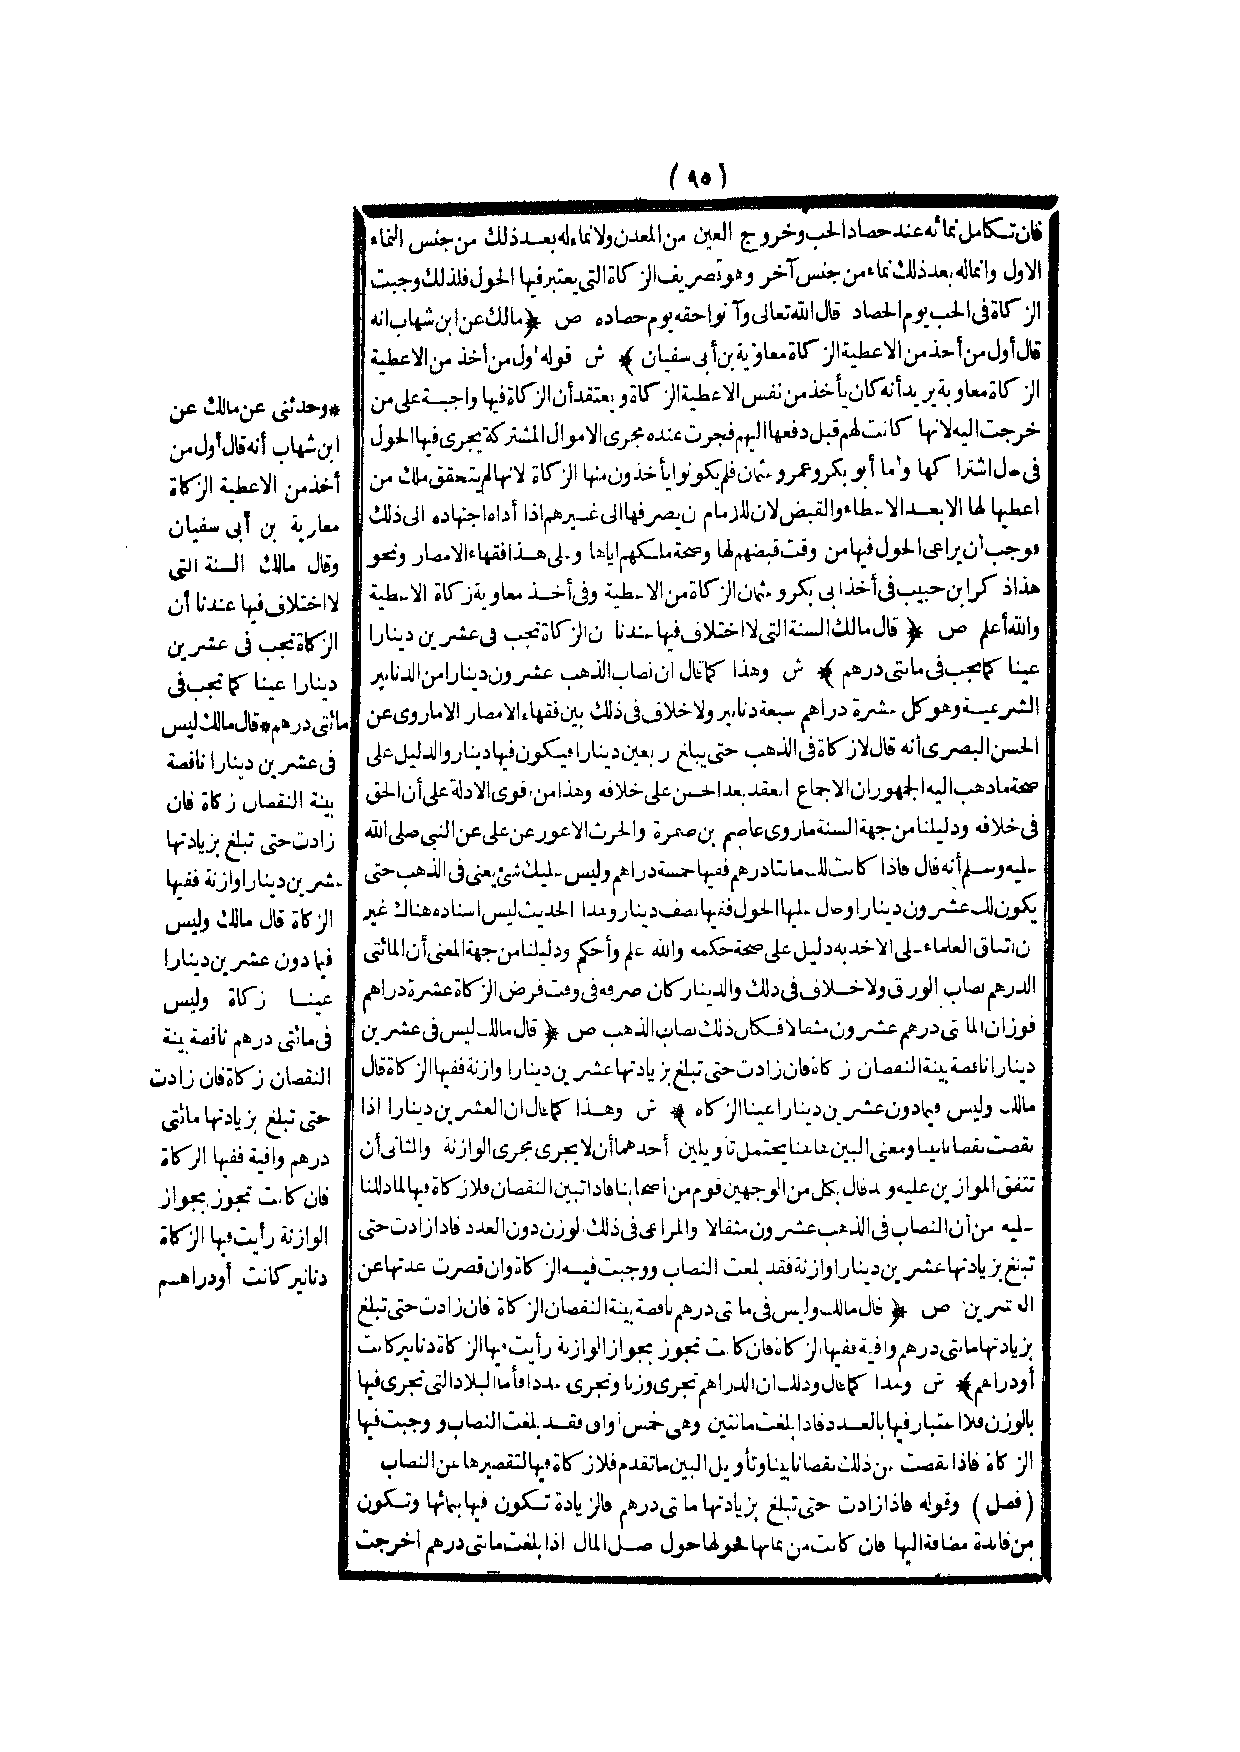 (٩٥)
فان تكامل نمائه عند حصاد الحب وخروج العين من المعدن ولا نماء له بعد ذلك من جنس النماء
الاول وانما له بعد ذلك نماء من جنس آخر وهو تصريف الزكاة التي يعتبر فيها الحول فلذلك وجبت
الزكاة في الحب يوم الحصاد قال الله تعالى وآتوا حقه يوم حصاده ص ﴿ مالك عن ابن شهاب انه
قال أول من أخذ من الاعطية الزكاة معاوية بن أبي سفيان ﴾ ش قوله أول من أخذ من الاعطية
الزكاة معاوية يريد أنه كان يأخذ من نفس الاعطية الزكاة ويعتقد أن الزكاة فيها واجبة على من
خرجت اليه لانها كانت لهم قبل دفعها اليهم فجرت عنده مجرى الاموال المشتركة يجرى فيها الحول
في حال اشتراكها وأما أبو بكر وعمر وعثمان فلم يكونوا يأخذون منها الزكاة لانها لم يتحقق ملك من
اعطيها لها الا بعد الاعطاء والقبض لان للامام أن يصرفها الى غيرهم اذا أداه اجتهاده الى ذلك
فوجب أن يراعى الحول فيها من وقت قبضهم لها وصحة ملكهم اياها وعلى هذا فقهاء الامصار ونحو
هذا ذكر ابن حبيب في أخذ أبي بكر وعثمان الزكاة من الاعطية وفي أخذ معاوية زكاة الاعطية
والله أعلم ص ﴿ قال مالك السنة التي لا اختلاف فيها عندنا أن الزكاة تجب في عشرين دينارا
عينا كما تجب في مائتي درهم ﴾ ش وهذا كما قال ان نصاب الذهب عشرون دينارا من الدنانير
الشرعية وهو كل عشرة دراهم سبعة دنانير ولا خلاف في ذلك بين فقهاء الامصار الا ما روى عن
الحسن البصري أنه قال لا زكاة في الذهب حتى يبلغ أربعين دينارا فيكون فيها دينار والدليل على
صحة ما ذهب اليه الجمهور ان الاجماع انعقد بعد الحسن على خلافه وهذا من أقوى الادلة على أن الحق
في خلافه ودليلنا من جهة السنة ما روى عاصم بن ضمرة والحرث الاعور عن علي عن النبي صلى الله
عليه وسلم أنه قال فاذا كانت لك مائتا درهم ففيها خمسة دراهم وليس عليك شئ يعني في الذهب حتى
يكون لك عشرون دينارا وحال عليها الحول ففيها نصف دينار وهذا الحديث ليس اسناده هناك غير
أن اتفاق العلماء على الاخذ به دليل على صحة حكمه والله أعلم وأحكم ودليلنا من جهة المعنى أن المائتي
الدرهم نصاب الورق ولا خلاف في ذلك والدينار كان صرفه في وقت فرض الزكاة عشرة دراهم
فوزان المائتي درهم عشرون مثقالا فكان ذلك نصاب الذهب ص ﴿ قال مالك ليس في عشرين
دينارا ناقصة بينة النقصان زكاة فان زادت حتى تبلغ بزيادتها عشرين دينارا وازنة ففيها الزكاة قال
مالك وليس فيما دون عشرين دينارا عينا الزكاة ﴾ ش وهذا كما قال ان العشرين دينارا اذا
نقصت نقصانا بينا ومعنى البين هاهنا يحتمل تأويلين أحدهما أن لا يجرى مجرى الوازنة والثاني أن
تتفق الموازين عليه وقد قال بكل من الوجهين قوم من أصحابنا فاذا تبين النقصان فلا زكاة فيها لما دللنا
عليه من أن النصاب في الذهب عشرون مثقالا والمراعى في ذلك الوزن دون العدد فاذا زادت حتى
تبلغ بزيادتها عشرين دينارا وازنة فقد بلغت النصاب ووجبت فيه الزكاة وان قصرت عدتها عن
العشرين ص ﴿ قال مالك وليس في مائتي درهم ناقصة بينة النقصان الزكاة فان زادت حتى تبلغ
بزيادتها مائتي درهم وافية ففيها الزكاة فان كانت تجوز بجواز الوازنة رأيت فيها الزكاة دنانير كانت
أو دراهم ﴾ ش وهذا كما قال وذلك ان الدراهم تجرى وزنا وتجرى عددا فأما البلاد التي تجرى فيها
بالوزن فلا اعتبار فيها بالعدد فاذا بلغت مائتين وهي خمس أواق فقد بلغت النصاب ووجبت فيها
الزكاة فاذا نقصت عن ذلك نقصانا بينا وتأويل البين ما تقدم فلا زكاة فيها لتقصيرها عن النصاب
(فصل) وقوله فاذا زادت حتى تبلغ بزيادتها مائتي درهم فالزيادة تكون فيها بمائها وتكون
من فائدة مضافة اليها فان كانت من نمائها فحولها حول أصل المال اذا بلغت مائتي درهم أخرجت
*وحدثني عن مالك عن
ابن شهاب أنه قال أول من
أخذ من الاعطية الزكاة
معاوية بن أبي سفيان
وقال مالك السنة التي
لا اختلاف فيها عندنا أن
الزكاة تجب في عشرين
دينارا عينا كما تجب في
مائتي درهم*قال مالك ليس
في عشرين دينارا ناقصة
بينة النقصان زكاة فان
زادت حتى تبلغ بزيادتها
عشرين دينارا وازنة ففيها
الزكاة قال مالك وليس
فيما دون عشرين دينارا
عينا زكاة وليس
في مائتي درهم ناقصة بينة
النقصان زكاة فان زادت
حتى تبلغ بزيادتها مائتي
درهم وافية ففيها الزكاة
فان كانت تجوز بجواز
الوازنة رأيت فيها الزكاة
دنانير كانت أو دراهم